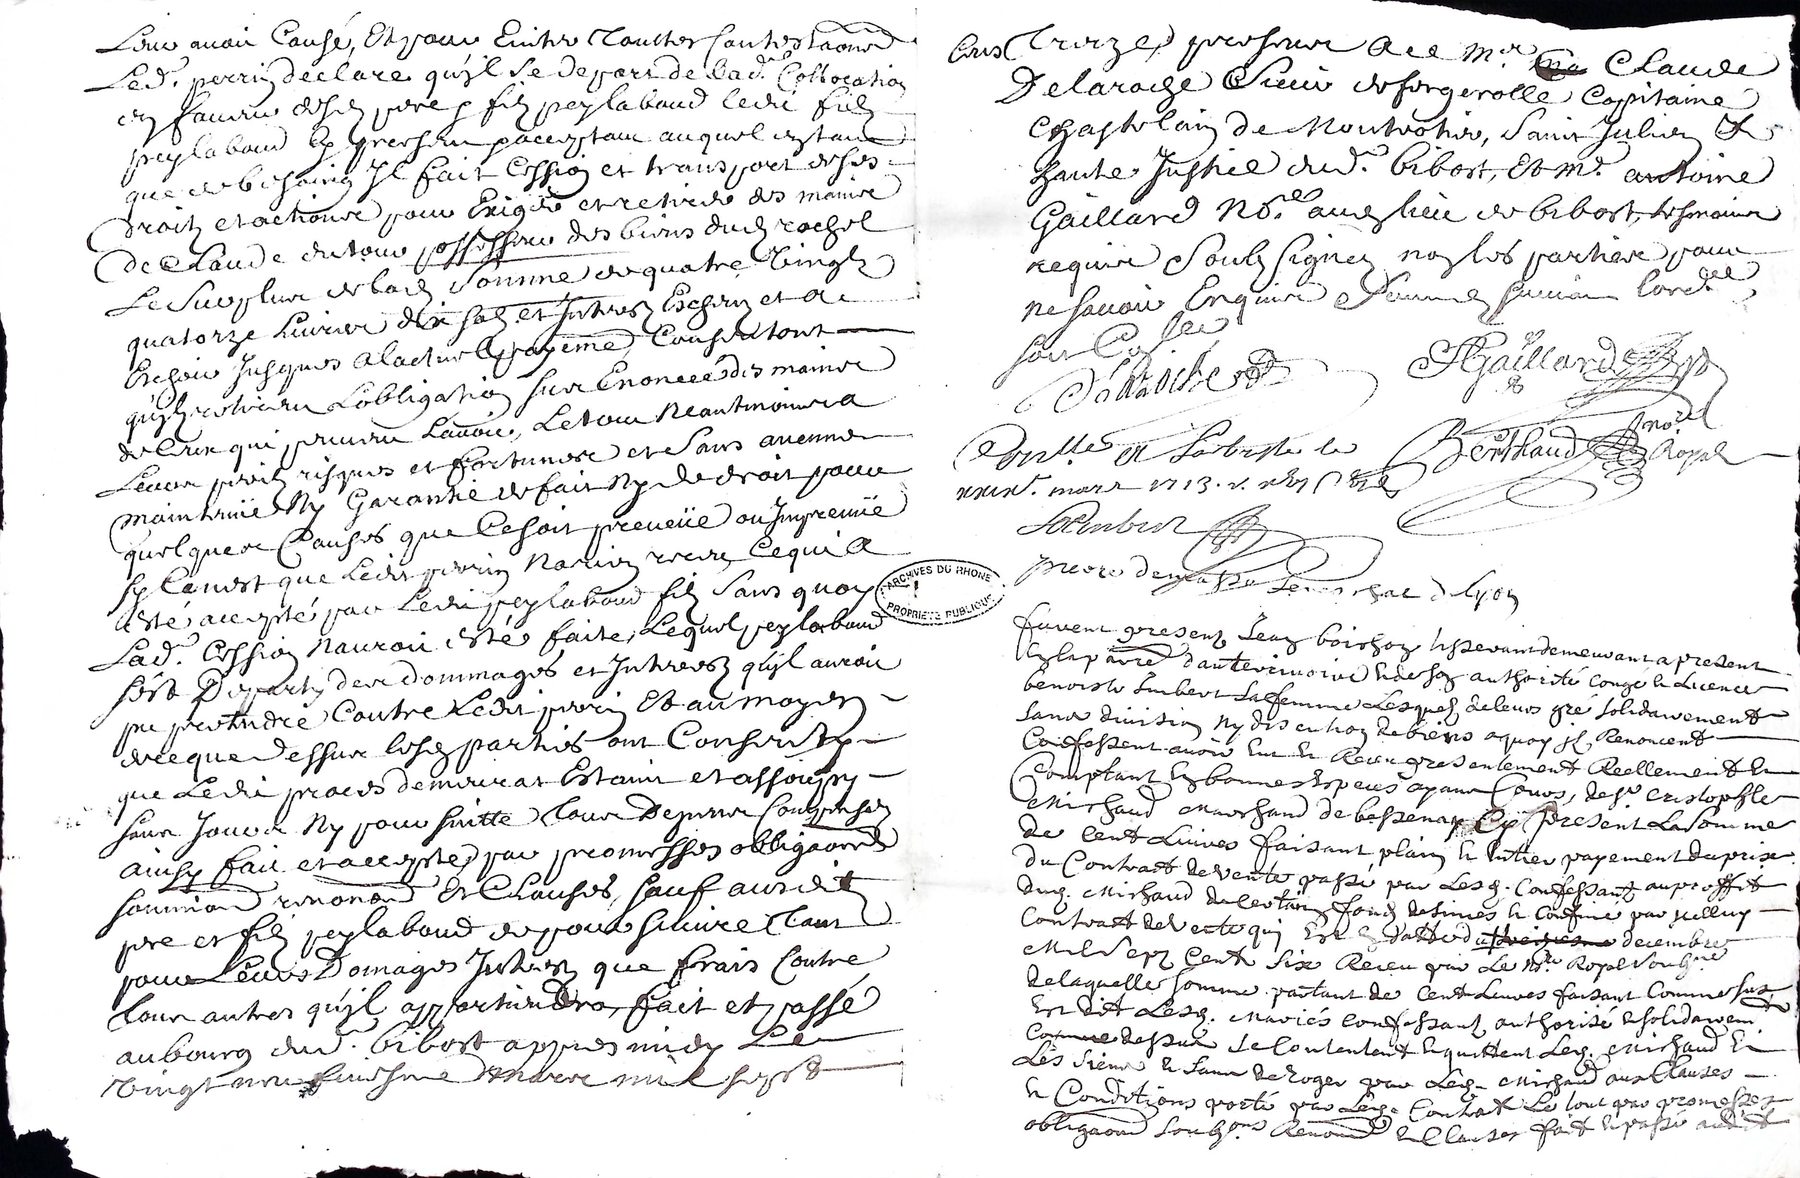 Leur avoir Causé, Et pour Eviter toutes Contestaõns
Led.t perrin declare qu'il se depart de lad.e Collocation
en faveur desd père & fils peylabaud ledit fils
peylabaud Cy present acceptant auquel entant
que de besoing Il fait Cession et transport de ses
droits et actions pour Exiger et retirer des mains
de Claude dutour possesseur des biens dud rochet
Le Surplus de lad Somme de quatre Vingts
quatorze Livres dix sols et Interest Escheus et a
Eschoir Jusques a lactuel payement, Consentant
qu'il retire L'obligation sus Enoncée des mains
de Ceux qui peuvent L'avoir, Le tout Neantmoins a
Leurs perils risques et fortunes et Sans aucune
maintenüe Ny Garantie de fait Ny de droit pour
quelques Causes que Ce soit preveüe ou Impreveüe
sy Ce n'est que Ledit perrin N'a rien receu Ce qui a
esté accepté par Ledit peylabaud fils Sans quoy
Lad.e Cession n'auroit esté faite, Lequel peylabaud
s'est Departy des dommages et Interests qu'il auroit
pu pretendre Contre Ledit perrin Et au moyen
de ce que dessus lesd parties ont Consenty
que Ledit proces demeurat Estaint et assoupy
sans Jouer Ny pour suitte Tous Depens Compensés
ainsy fait et accepté par promesses obligaõns
soumions renonõns Et Clauses, sauf ausdits
pere et fils peylabaud de poursuivre Tant
pour Leurs Domages Interests que frais Contre
tous autres qu'il appartiendra, fait et passé
au bourg dud. bibost apres midy Le
Vingt neufviesme Mars mil sept
Cens Treize, presens a ce M.re Claude
Delaroche Sieur de forgerolle Capitaine
Chastelain de Montrotier, Saint Julien &
haute Justice dud. bibost, Et M.e antoine
Gaillard No.re aud lieu de bibost, tesmoins
requis Soubs Signez non les parties pour
ne savoir Enquis
soit Collé
Delaroche
AGaillard
Berthaud no.re Royal
mars 1713.
ARCHIVES DU RHONE
PROPRIÉTÉ PUBLIQUE
Senechal de Lyon
furent presents Jean boichon tisserant demeurant a present
authorité Congé & Licence
benoiste Imbert Sa femme Lesquels de leurs gré solidairement
sans division ny discution de biens a quoy ils Renoncent
Confessent avoir Eu & Receu presentement Reellement &
Comptant En bonnes Especes ayant Cours, de S.r Cristophle
Michaud Marchand de bessenay Cy present La Somme
de Cent Livres faisant plain & Entier payement du prix
du Contract de vente passé par Lesd. Confessants au proffit
dud. Michaud de Certain fonds designés & Confiné par Icelluy
Contract de Vente qui Est En datte du decembre
Mil Sept Cents Six Receu par Le No.re Royal Soubsigné
de laquelle Somme partant de Cent Livres faisant Comme sus
Est dit Lesd. Mariés Confessants authorisé & solidairem.t
Comme dessus se Contentent & quittent Led. Michaud &
Les Siens
& Conditions porté par Led. Contract Le tout par promesses
obligaõns Soubm.ons Renonõns & Clauses fait & passé audit